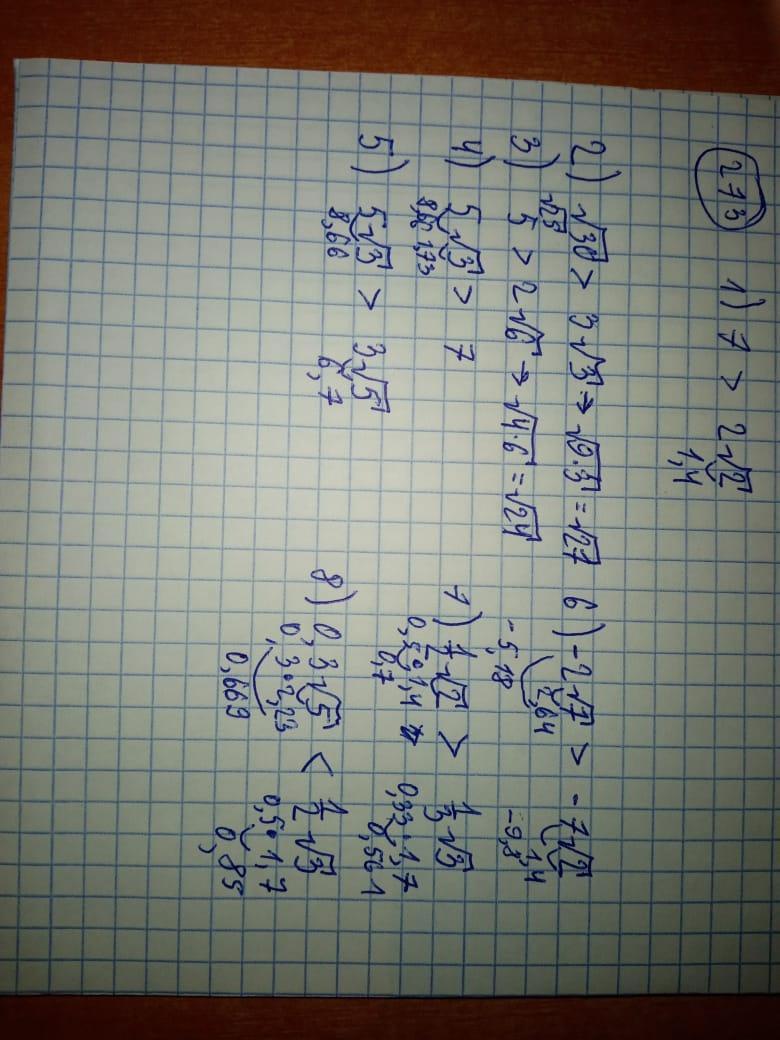 273 1) 7 > 2√2
1,4
2) √30 > 3√3 → √9·3 = √27
3) 5 > 2√6 → √4·6 = √24
√25
4) 5√3 > 7
8,66 1,73
5) 5√3 > 3√5
8,66 6,7
6) -2√7 > -7√2
2,64 1,4
-5,18 -9,8
7) 1/2√2 > 1/3√3
0,5·1,4 0,33·1,7
0,7 0,561
8) 0,3√5 < 1/2√3
0,3·2,23 0,5·1,7
0,669 0,85